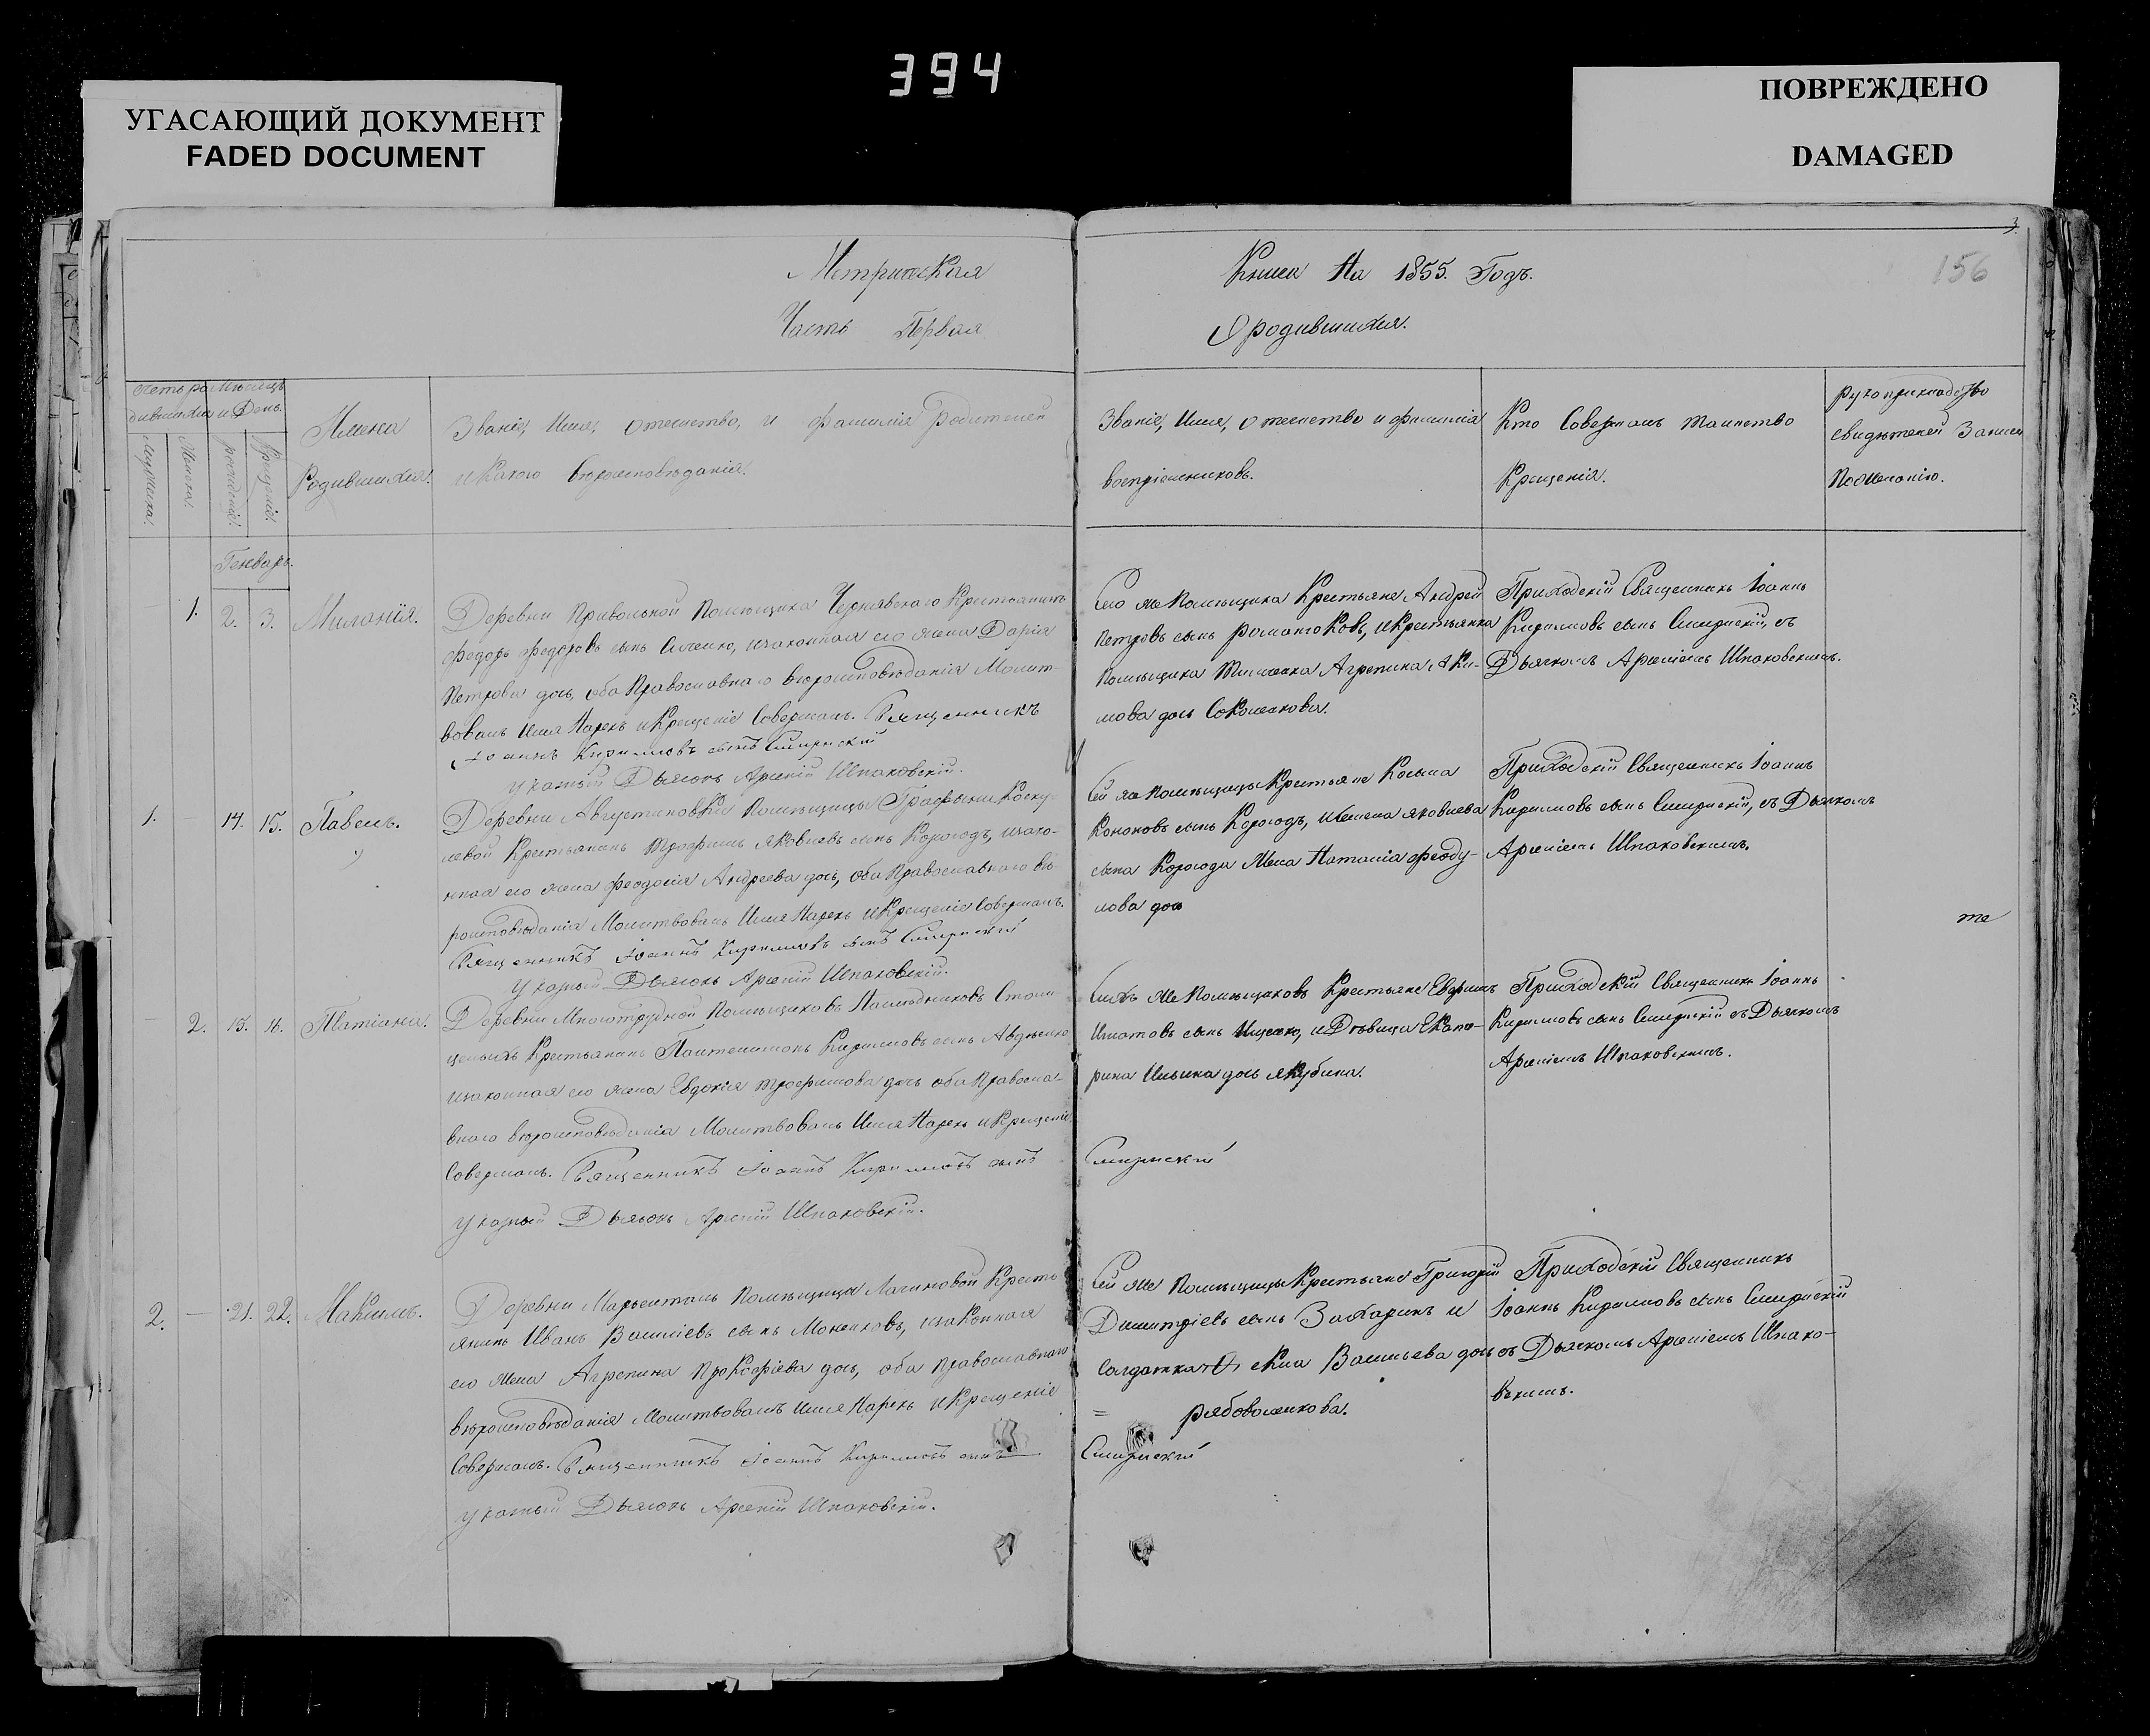 394
УГАСАЮЩИЙ ДОКУМЕНТ
FADED DOCUMENT
ПОВРЕЖДЕНО
DAMAGED
3.
156
Метрическая Книга На 1855. Годъ.
Часть Первая О родившихся.
Счетъ ро Мѣсяцъ
дившихся и День.
Мужеска.
Женска.
рожденія.
Крещенія.
Имена
Родившихся.
Званіе, Имя, отечество, и фамилія родителей
и Какого вѣроисповѣданія.
Званіе, Имя, отечество и фамилія
воспріемниковъ.
Кто Совершалъ таинство
Крещенія.
рукоприкладство
свидѣтелей Записи
По Желанію.
Генварь.
1.
2.
3.
Миланія.
Деревни Привольной Помѣщика Чернявскаго Крестьянинъ
Федоръ Федоровъ сынъ изаконная его жена Дарія
Петрова дочь, оба Православнаго вѣроисповѣданія Молит-
вовалъ Имя Нарекъ и Крещеніе Совершалъ. Священникъ
Іоаннъ Кириловъ сынъ
указный Дьячокъ Арсеній Шпаковскій.
Сего же Помѣщика Крестьяне Андрей
Петровъ сынъ и Крестьянка
Помѣщика Агрепина Аки-
мова дочь
Приходскій Священникъ Іоаннъ
Кириловъ сынъ съ
Дьячкомъ Арсеніемъ Шпаковскимъ.
1.
—
14.
15.
Павелъ.
Деревни Августиновки Помѣщицы Графыни
Крестьянинъ Трофимъ Яковлевъ сынъ Корогодъ, изако-
нная его жена Феодосія Андреева дочь, оба Православнаго вѣ-
роисповѣданія Молитвовалъ Имя Нарекъ и Крещеніе Совершалъ.
Священникъ Іоаннъ Кириловъ сынъ
указный Дьячокъ Арсеній Шпаковскій.
Сей же Помѣщицы Крестьяне Косьма
Кононовъ сынъ Корогодъ, Яковлева
сына Корогода Жена Наталія Феоду-
лова дочь
Приходскій Священникъ Іоаннъ
Кириловъ сынъ съ Дьячкомъ
Арсеніемъ Шпаковскимъ.
те
—
2.
15.
16.
Татіана.
Деревни Многотрудной Помѣщиковъ Наслѣдниковъ
Крестьянинъ Пантелимонъ Кириловъ сынъ Авдѣенко,
изаконная его жена Евдокія Трофимова дочь оба Правосла-
внаго вѣроисповѣданія Молитвовалъ Имя Нарекъ и Крещеніе
Совершалъ. Священникъ Іоаннъ Кириловъ сынъ
указный Дьячокъ Арсеній Шпаковскій.
Сихъ же Помѣщиковъ Крестьяне
сынъ Ищенко, и Дѣвица Екате-
рина Ильина дочь Якубина.
Приходскій Священникъ Іоаннъ
Кириловъ сынъ съ Дьячкомъ
Арсеніемъ Шпаковскимъ.
2.
—
21.
22.
Максимъ.
Деревни Помѣщицы Кресть
янинъ Иванъ Василіевъ сынъ изаконная
его жена Агрепина Прокофіева дочь, оба православнаго
вѣроисповѣданія Молитвовалъ Имя Нарекъ и Крещеніе
Совершалъ. Священникъ Іоаннъ Кириловъ сынъ
указный Дьячокъ Арсеній Шпаковскій.
Сей же Помѣщицы Крестьяне Григорій
Димитріевъ сынъ Захаринъ и
Солдатка Васильева дочь
=
Приходскій Священникъ
Іоаннъ Кириловъ сынъ
съ Дьячкомъ Арсеніемъ Шпако-
вскимъ.